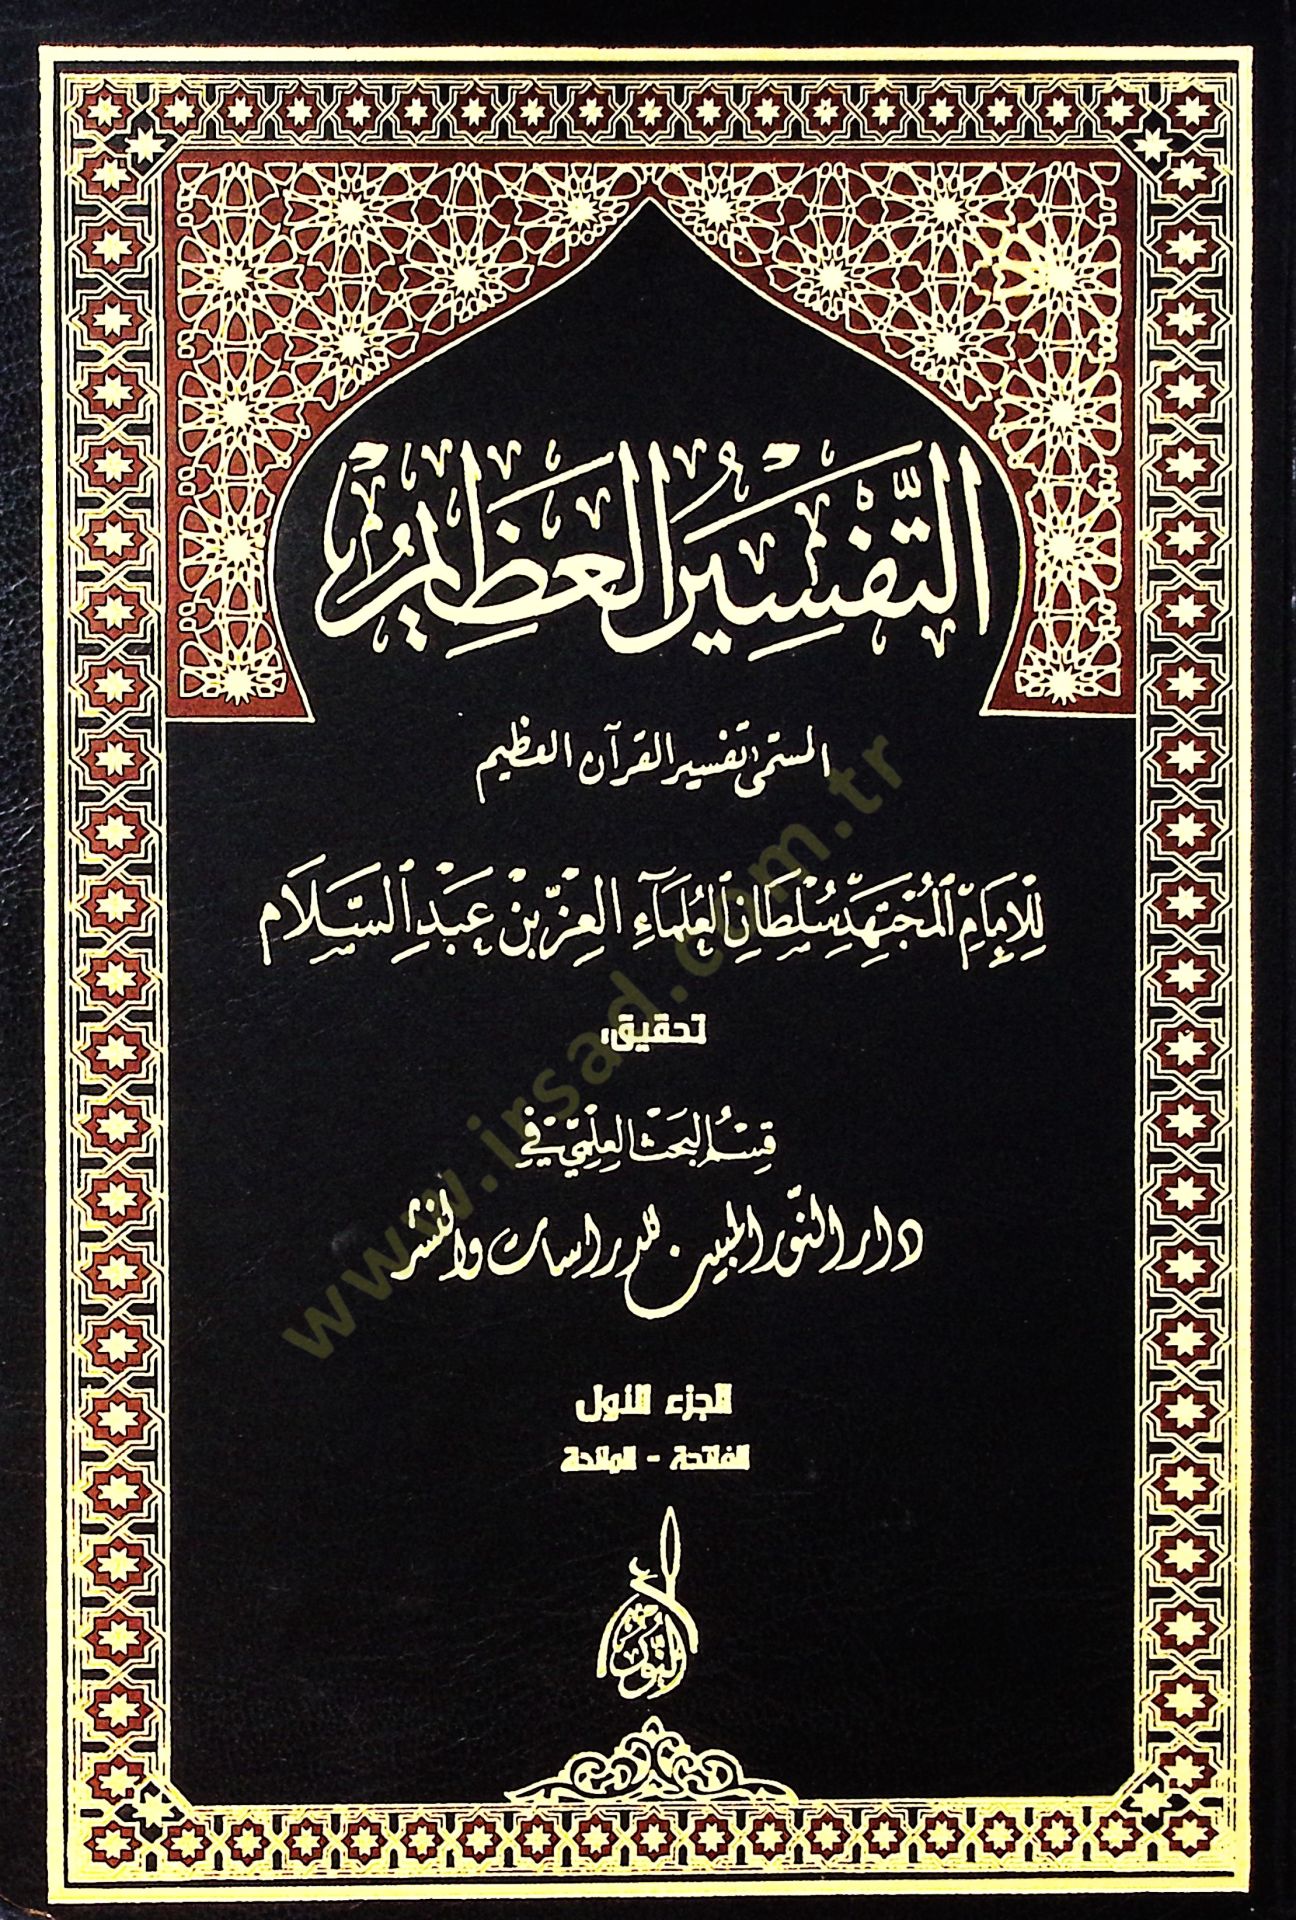 التَّفْسِيرُ العَظِيمُ
المسمّى تفسير القرآن العظيم
لِلْإِمَامِ الْمُجْتَهِدِ سُلْطَانِ الْعُلَمَاءِ الْعِزِّ بْنِ عَبْدِ السَّلَام
تحقيق:
قِسْمُ البَحْثِ العِلْمِيِّ فِي
دار النّور المبين للدراسات والنشر
الجزء الأول
الفاتحة - المائدة
النُّور
www.irsad.com.tr